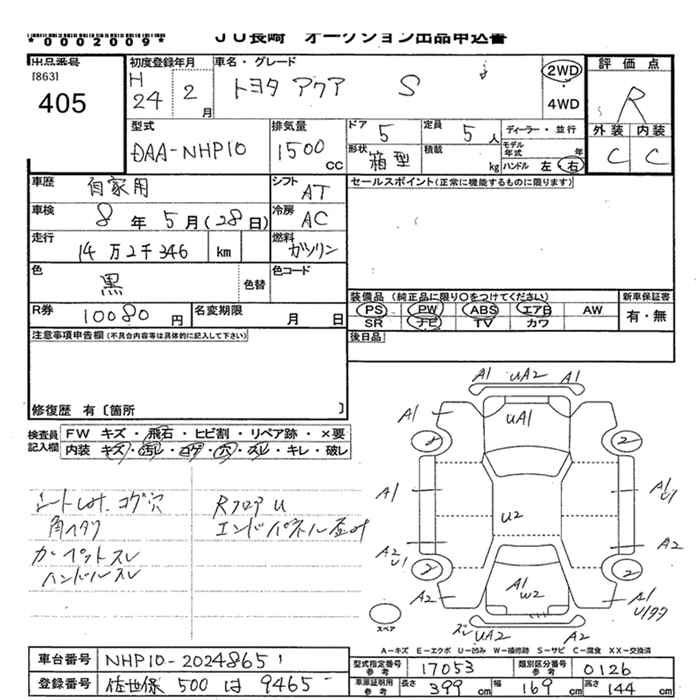 *0002009*
JU長崎 オークション出品申込書
出品番号 [863] 405
初度登録年月 H 24 2 月
車名・グレード トヨタ アクア S
2WD 4WD
評価点 R
外装 内装
C C
型式 DAA-NHP10
排気量 1500 CC
ドア 5 定員 5 人
形状 箱型 積載 kg
ディーラー・並行
モデル年式 年
ハンドル 左 右
車歴 自家用
シフト AT
セールスポイント(正常に機能するものに限ります)
車検 8 年 5 月 (28 日)
冷房 AC
走行 14万2千346 km
燃料 ガソリン
色 黒 色替 色コード
装備品 (純正品に限り○をつけてください)
PS PW ABS エアB AW
SR ナビ TV カワ
新車保証書 有・無
R券 10080 円
名変期限 月 日
後日品
注意事項申告欄(不具合内容等は具体的に記入して下さい)
修復歴 有〔箇所 〕
検査員記入欄
FW キズ・飛石・ヒビ割・リペア跡・×要
内装 キズ・汚レ・コゲ・穴・スレ・キレ・破レ
コゲ穴
カーペットスレ
ハンドルスレ
RフロアU
エンドパネル
A1 UA2 A1
A1 UA1
2 2
A1 A1 U1
U2
A2 U1 A2
2 2
A2 A1 W2 A1
スレ UA2 A2
スペア
A-キズ E-エクボ U-凹み W-補修跡 S-サビ C-腐食 XX-交換済
車台番号 NHP10-2024865
型式指定番号 参考 17053
類別区分番号 参考 0126
登録番号 佐世保 500 は 9465
車庫証明用 参考 長さ 399 cm 幅 169 cm 高さ 144 cm